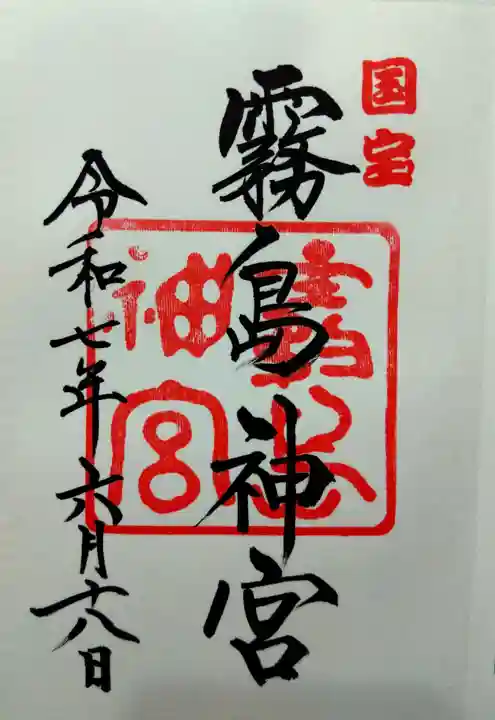 国宝
霧島神宮
霧島神宮
令和七年六月十八日